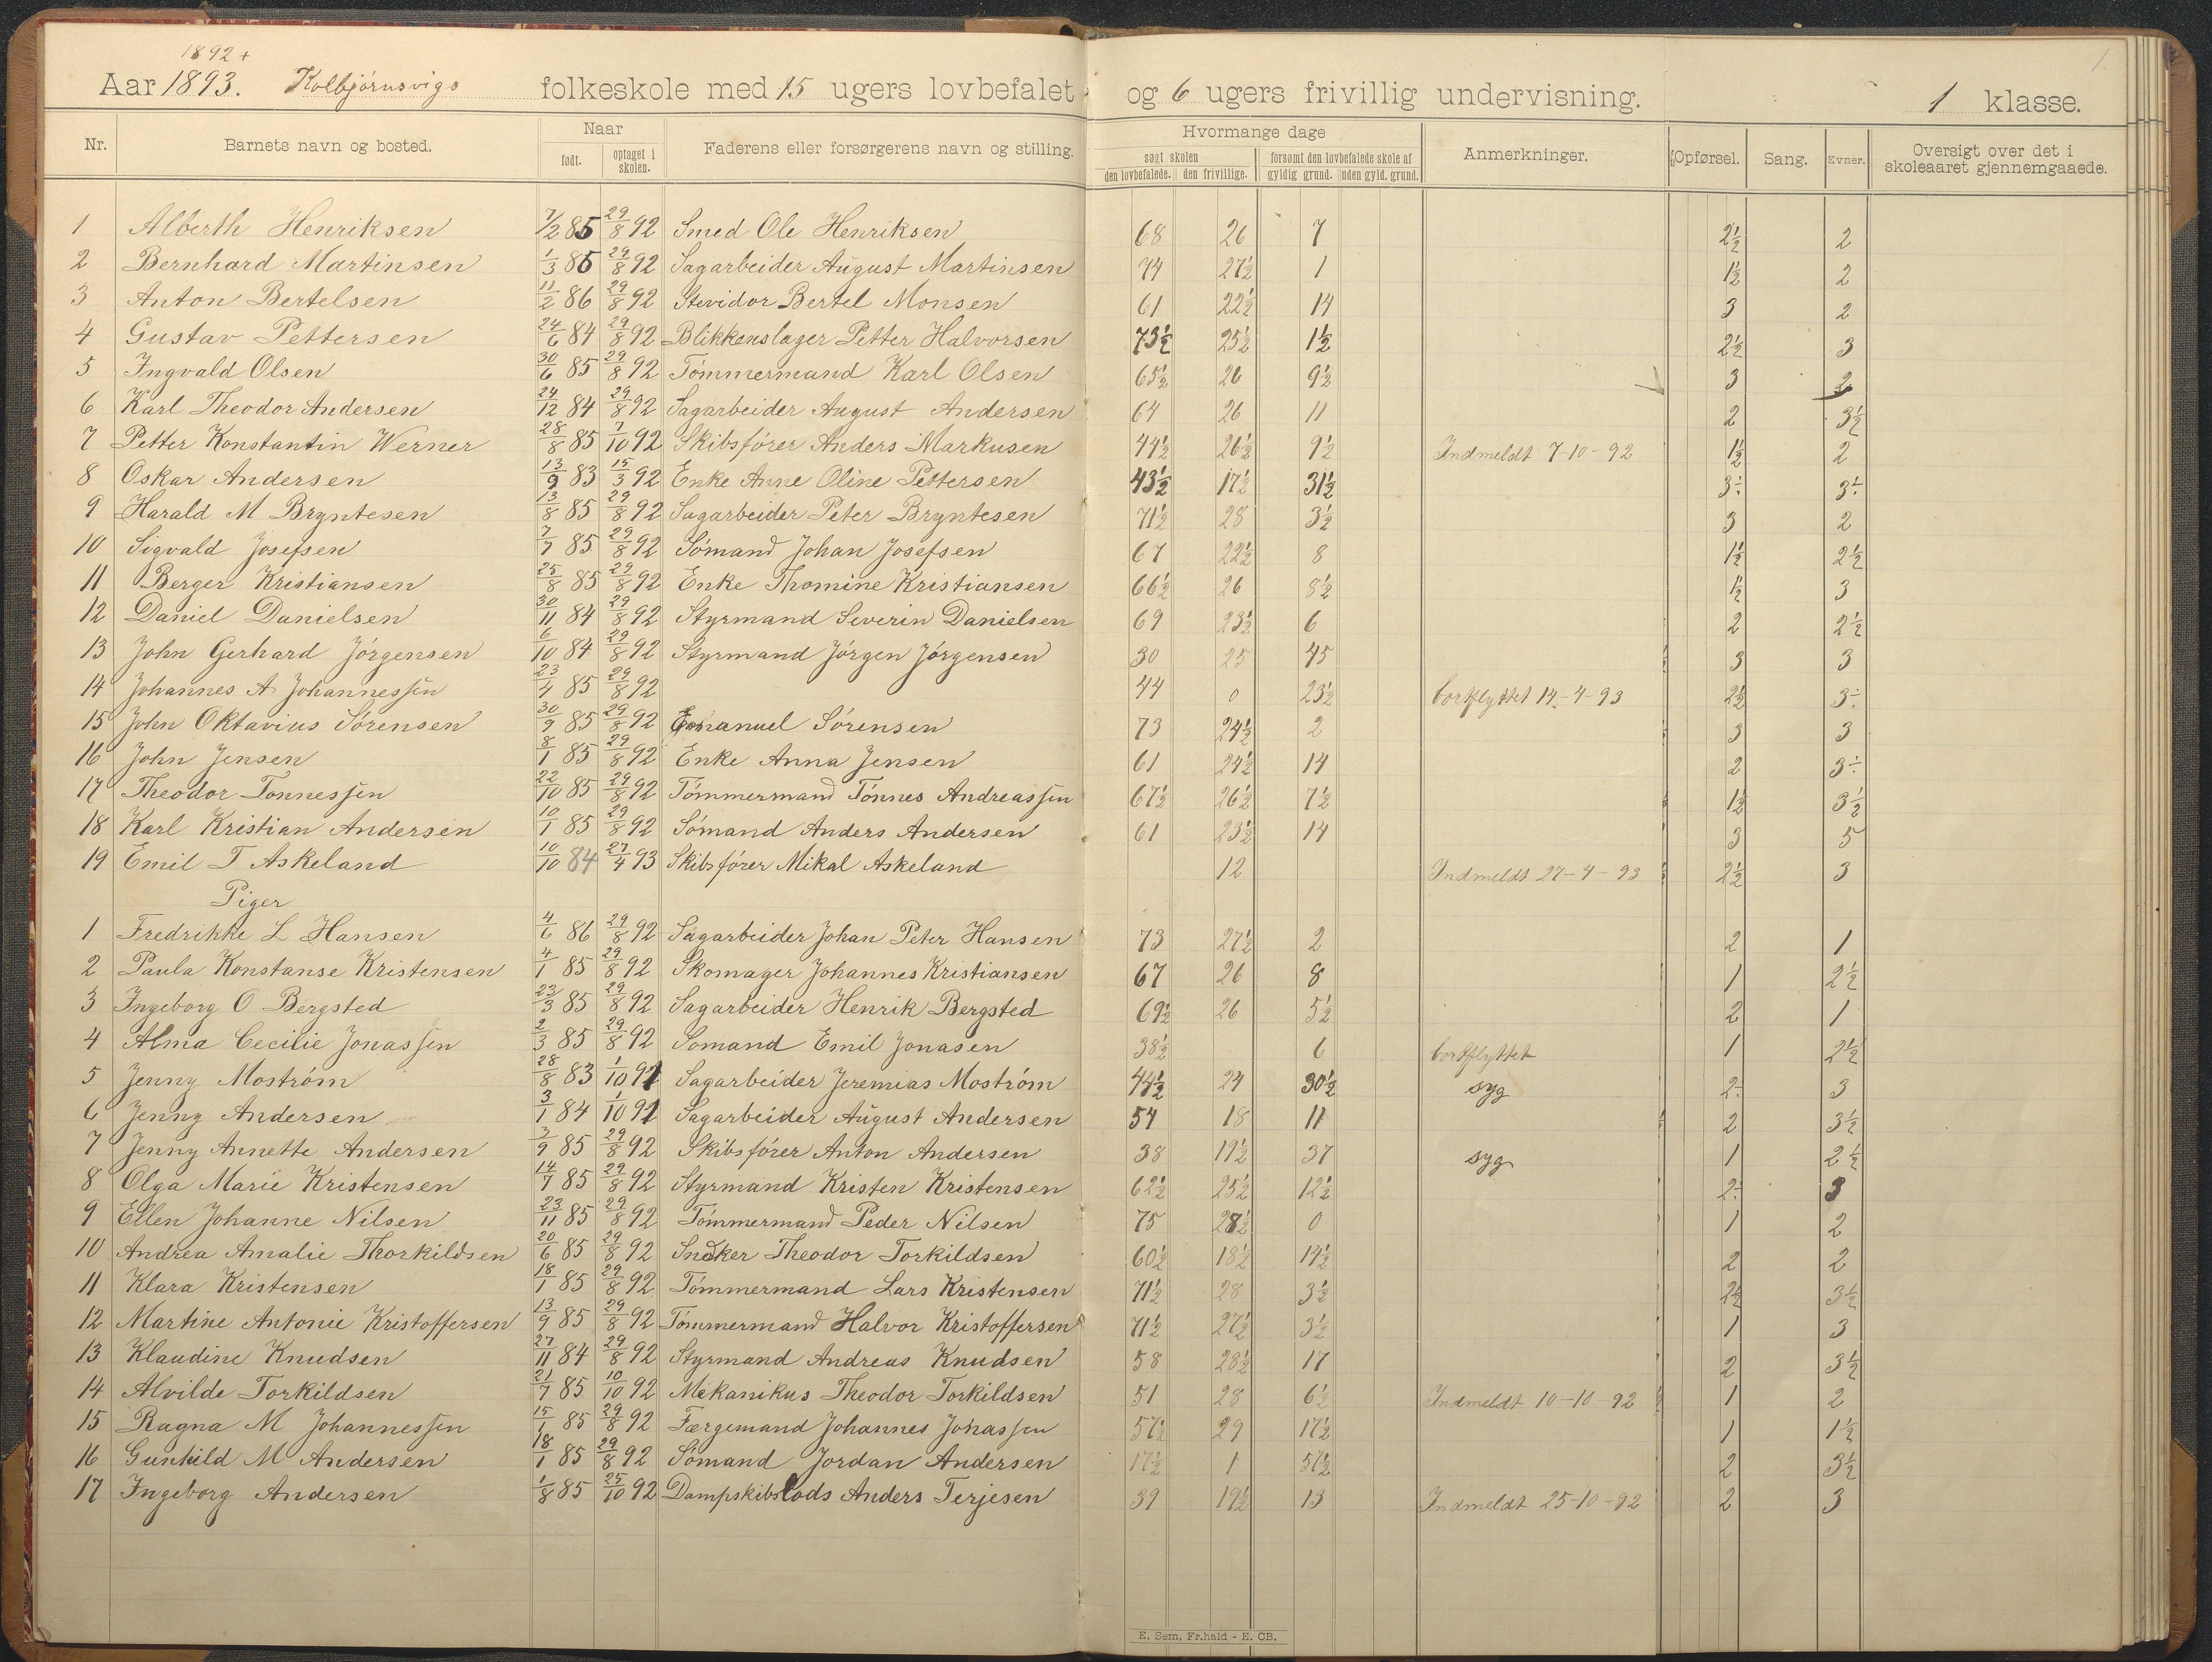 1.
1892 +
Aar 1893. Kolbjørnsvigs folkeskole med 15 ugers lovbefalet og 6 ugers frivillig undervisning. 1 klasse.
Nr. Barnets navn og bosted. Naar Faderens eller forsørgerens navn og stilling. Hvormange dage Anmerkninger. Opførsel. Sang. Evner. Oversigt over det i skoleaaret gjennemgaaede.
født. optaget i skolen. søgt skolen forsømt den lovbefalede skole af
den lovbefalede. den frivillige. gyldig grund. uden gyld. grund.
1 Alberth Henriksen 7/2 85 29/8 92 Smed Ole Henriksen 68 26 7 2½ 2
2 Bernhard Martinsen 1/3 85 29/8 92 Sagarbeider August Martinsen 74 27½ 1 1½ 2
3 Anton Bertelsen 11/2 86 29/8 92 Stevidor Bertel Monsen 61 22½ 14 3 2
4 Gustav Pettersen 24/6 84 29/8 92 Blikkenslager Petter Halvorsen 73½ 25½ 1½ 2½ 3
5 Ingvald Olsen 30/6 85 29/8 92 Tømmermand Karl Olsen 65½ 26 9½ 3 2
6 Karl Theodor Andersen 24/12 84 29/8 92 Sagarbeider August Andersen 64 26 11 2 3½
7 Petter Konstantin Werner 28/8 85 7/10 92 Skibsfører Anders Markusen 44½ 26½ 9½ Indmeldt 7-10-92 1½ 2
8 Oskar Andersen 13/9 83 15/3 92 Enke Anne Oline Pettersen 43½ 17½ 31½ 3÷ 3÷
9 Harald M Bryntesen 13/8 85 29/8 92 Sagarbeider Peter Bryntesen 71½ 28 3½ 3 2
10 Sigvald Josefsen 7/7 85 29/8 92 Sømand Johan Josefsen 67 22½ 8 1½ 2½
11 Berger Kristiansen 25/8 85 29/8 92 Enke Thomine Kristiansen 66½ 26 8½ 1½ 3
12 Daniel Danielsen 30/11 84 29/8 92 Styrmand Severin Danielsen 69 23½ 6 2 2½
13 John Gerhard Jørgensen 6/10 84 29/8 92 Styrmand Jørgen Jørgensen 30 25 45 3 3
14 Johannes A Johannessen 23/4 85 29/8 92 44 0 23½ bortflyttet 14-4-93 2½ 3÷
15 John Oktavius Sørensen 30/9 85 29/8 92 Emanuel Sørensen 73 24½ 2 3 3
16 John Jensen 8/1 85 29/8 92 Enke Anna Jensen 61 24½ 14 2 3÷
17 Theodor Tønnessen 22/10 85 29/8 92 Tømmermand Tønnes Andreassen 67½ 26½ 7½ 1½ 3½
18 Karl Kristian Andersen 10/1 85 29/8 92 Sømand Anders Andersen 61 23½ 14 3 5
19 Emil T Askeland 10/10 84 27/4 93 Skibsfører Mikal Askeland 12 Indmeldt 27-4-93 2½ 3
Piger
1 Fredrikke L Hansen 4/6 86 29/8 92 Sagarbeider Johan Peter Hansen 73 27½ 2 2 1
2 Paula Konstanse Kristensen 4/1 85 29/8 92 Skomager Johannes Kristiansen 67 26 8 1 2½
3 Ingeborg O Bergsted 23/3 85 29/8 92 Sagarbeider Henrik Bergsted 69½ 26 5½ 2 1
4 Alma Cecilie Jonassen 2/3 85 29/8 92 Sømand Emil Jonasen 38½ 6 bortflyttet 1 2½
5 Jenny Mostrøm 28/8 83 1/10 91 Sagarbeider Jeremias Mostrøm 44½ 24 30½ syg 2÷ 3
6 Jenny Andersen 3/1 84 1/10 91 Sagarbeider August Andersen 54 18 11 2 3½
7 Jenny Annette Andersen 3/9 85 29/8 92 Skibsfører Anton Andersen 38 19½ 37 syg 1 2½
8 Olga Marie Kristensen 14/7 85 29/8 92 Styrmand Kristen Kristensen 62½ 25½ 12½ 2÷ 3
9 Ellen Johanne Nilsen 23/11 85 29/8 92 Tømmermand Peder Nilsen 75 28½ 0 1 2
10 Andrea Amalie Thorkildsen 20/6 85 29/8 92 Snedker Theodor Torkildsen 60½ 18½ 14½ 2 2
11 Klara Kristensen 18/1 85 29/8 92 Tømmermand Lars Kristensen 71½ 28 3½ 2½ 3½
12 Martine Antonie Kristoffersen 13/9 85 29/8 92 Tømmermand Halvor Kristoffersen 71½ 27½ 3½ 1 3
13 Klaudine Knudsen 27/11 84 29/8 92 Styrmand Andreas Knudsen 58 28½ 17 2 3½
14 Alvilde Torkildsen 21/7 85 10/10 92 Mekanikus Theodor Torkildsen 51 28 6½ Indmeldt 10-10-92 1 2
15 Ragna M Johannessen 15/1 85 29/8 92 Færgemand Johannes Johassen 57½ 29 17½ 1 1½
16 Gunhild M Andersen 18/1 85 29/8 92 Sømand Jordan Andersen 17½ 1 57½ 2 3½
17 Ingeborg Andersen 1/8 85 25/10 92 Dampskibslods Anders Terjesen 39 19½ 13 Indmeldt 25-10-92 2 3
E. Sem, Fr.hald - E. CB.